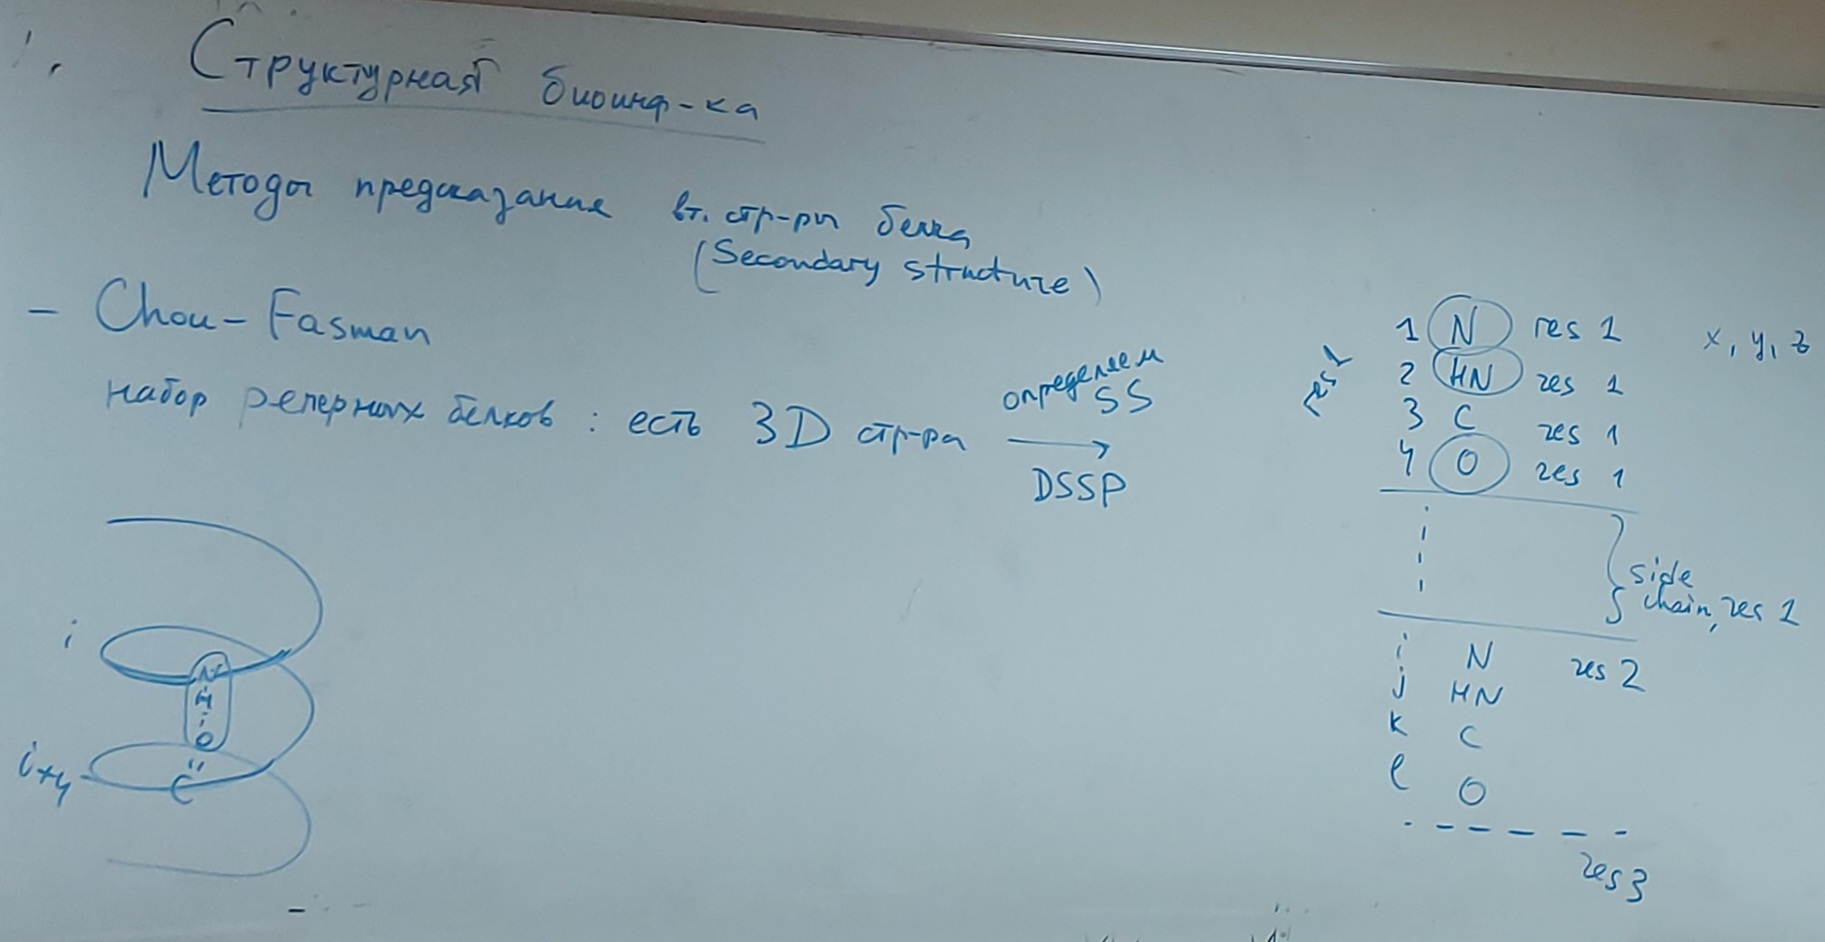 1.
Структурная биоинф-ка
Методы предсказания вт. стр-ры белка
(Secondary structure)
- Chou-Fasman
набор реперных белков : есть 3D стр-ра
определяем
SS
DSSP
i
N
H
O
C
i+4
res 1
1 N res 1 x, y, z
2 HN res 1
3 C res 1
4 O res 1
side
chain, res 1
i N res 2
j HN
k C
l O
res 3